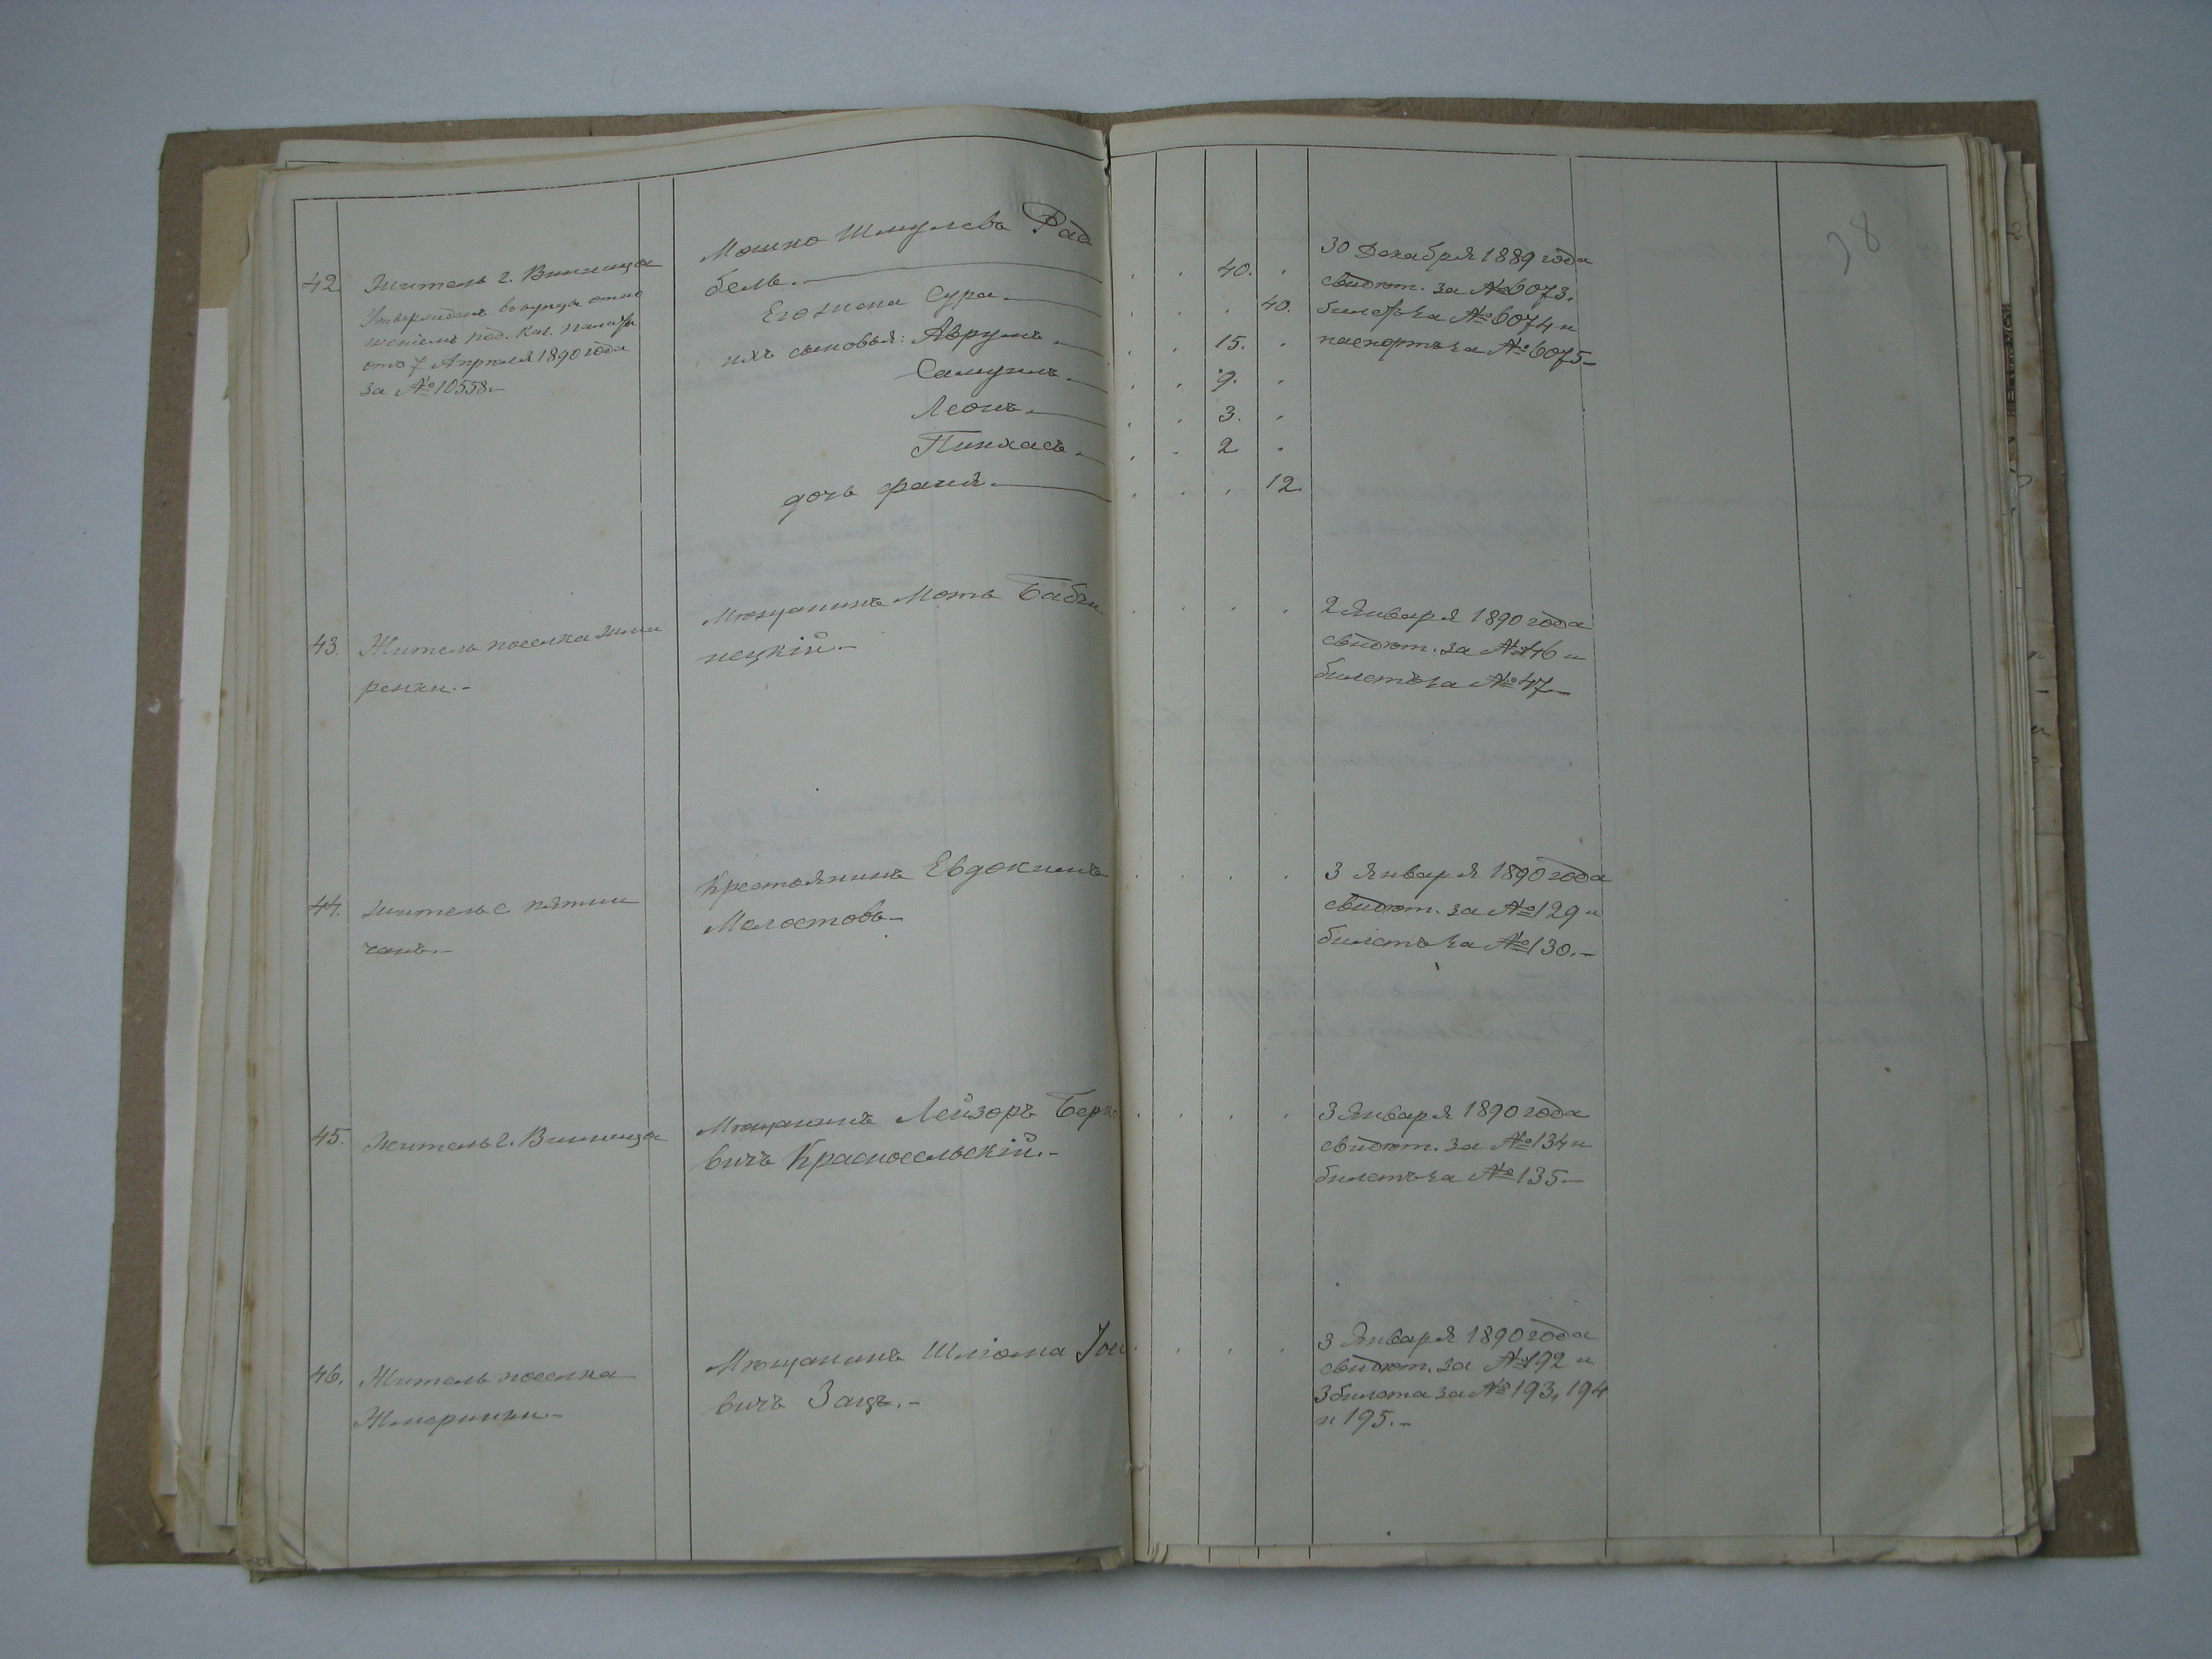 38
42. Житель г. Винница
Утвержденъ
Под. Каз. палаты
отъ 7 Апрѣля 1890 года
за № 10558.—
Мошко Шмулевъ Рад
бель.— . . 40. .
Его жена Сура.— . . . 40.
ихъ сыновья: Аврумъ.— . . 15. .
Самуилъ.— . . 9. .
Леонъ.— . . 3. .
Пинхасъ.— . . 2 .
дочь Фаня.— . . . 12.
30 Декабря 1889 года
свидѣт. за № 6073,
билетъ за № 6074 и
паспортъ за № 6075—
43. Житель поселка Жме
ринки.—
Мѣщанинъ Моть Бабчи
нецкій.— . . . .
2 Января 1890 года
свидѣт. за № 46 и
билетъ за № 47—
44. Житель с Пятни
чанъ.—
Крестьянинъ Евдокимъ
Молостовъ— . . . .
3 Января 1890 года
свидѣт. за № 129 и
билетъ за № 130.—
45. Житель г. Винница
Мѣщанинъ Лейзоръ Берко
вичъ Красносельскій.— . . . .
3 Января 1890 года
свидѣт. за № 134 и
билетъ за № 135—
46. Житель поселка
Жмеринки.—
Мѣщанинъ Шліома Іос
вичъ Зацъ.— . . . .
3 Января 1890 года
свидѣт. за № 192 и
3 билета за № 193, 194
и 195.—